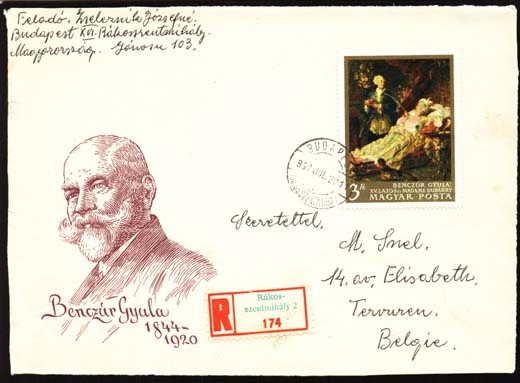 Feladó: Zseleznik Józsefné.
Budapest XVI. Rákosszentmihály,
Magyarország. János u 103.
BUDAP
BENCZÚR GYULA:
XV. LAJOS és MADAME DUBARRY
3 Ft
MAGYAR POSTA
Szeretettel.
M. Snel.
14. av. Elisabeth.
Tervuren.
Belgie.
Benczúr Gyula
1844-
1920
R
Rákos-
szentmihály 2
174